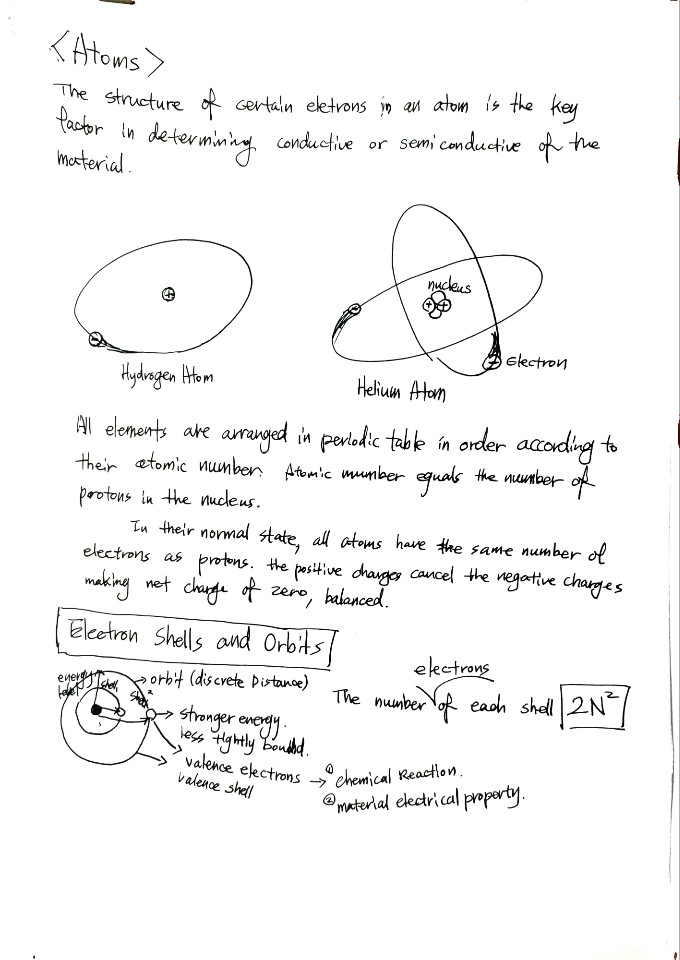 <Atoms>
The structure of certain eletrons in an atom is the key
factor in determining conductive or semiconductive of the
material.
nucleus
+
-
+ +
-
-
Electron
Hydrogen Atom
Helium Atom
All elements are arranged in periodic table in order according to
their atomic number. Atomic mumber equals the number of
protons in the nucleus.
In their normal state, all atoms have the same number of
electrons as protons. the positive charges cancel the negative charges
making net charge of zero, balanced.
Electron Shells and Orbits
energy
level
shell 1
shell 2
orbit (discrete Distance)
stronger energy.
less tightly bound.
valence electrons → ① chemical Reaction.
valence shell
② material electrical property.
electrons
The number of each shell 2N²